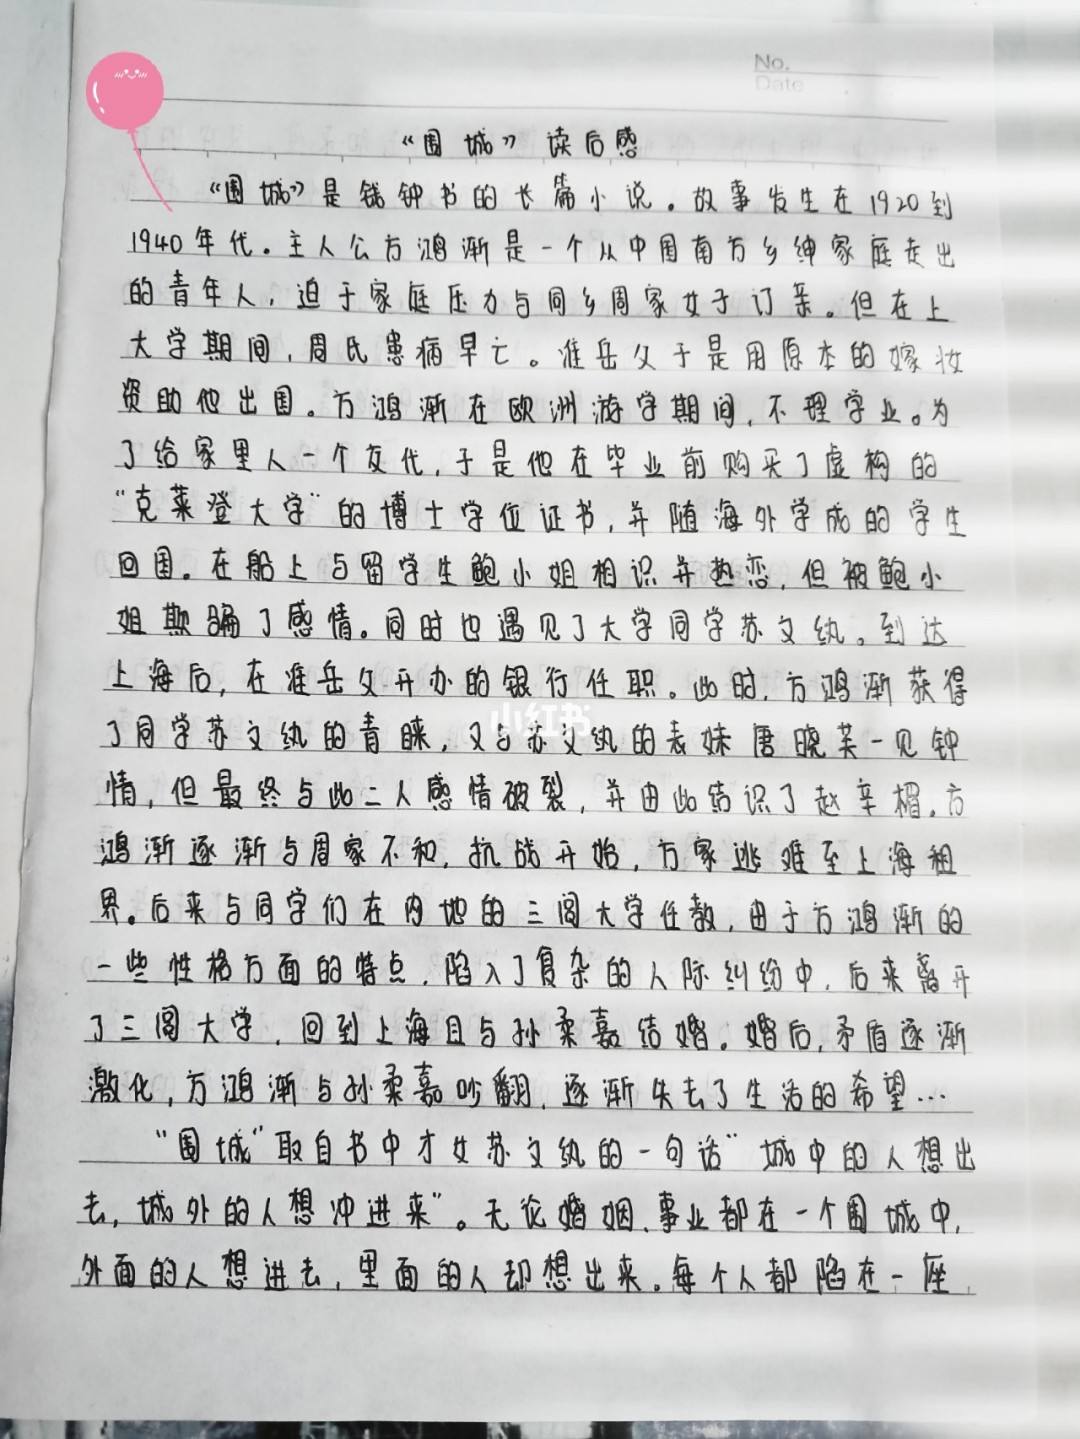 No.
Date
《围城》读后感
《围城》是钱钟书的长篇小说。故事发生在1920到
1940年代。主人公方鸿渐是一个从中国南方乡绅家庭走出
的青年人，迫于家庭压力与同乡周家女子订亲。但在上
大学期间，周氏患病早亡。准岳父于是用原本的嫁妆
资助他出国。方鸿渐在欧洲游学期间，不理学业。为
了给家里人一个交代，于是他在毕业前购买了虚构的
“克莱登大学”的博士学位证书，并随海外学成的学生
回国。在船上与留学生鲍小姐相识并热恋，但被鲍小
姐欺骗了感情。同时也遇见了大学同学苏文纨。到达
上海后，在准岳父开办的银行任职。此时，方鸿渐获得
了同学苏文纨的青睐，又与苏文纨的表妹唐晓芙一见钟
情，但最终与此二人感情破裂，并由此结识了赵辛楣。方
鸿渐逐渐与周家不和，抗战开始，方家逃难至上海租
界。后来与同学们在内地的三闾大学任教，由于方鸿渐的
一些性格方面的特点，陷入了复杂的人际纠纷中，后来离开
了三闾大学，回到上海且与孙柔嘉结婚。婚后，矛盾逐渐
激化，方鸿渐与孙柔嘉吵翻，逐渐失去了生活的希望…
“围城”取自书中才女苏文纨的一句话“城中的人想出
去，城外的人想冲进来”。无论婚姻、事业都在一个围城中，
外面的人想进去，里面的人却想出来。每个人都陷在一座
小红书